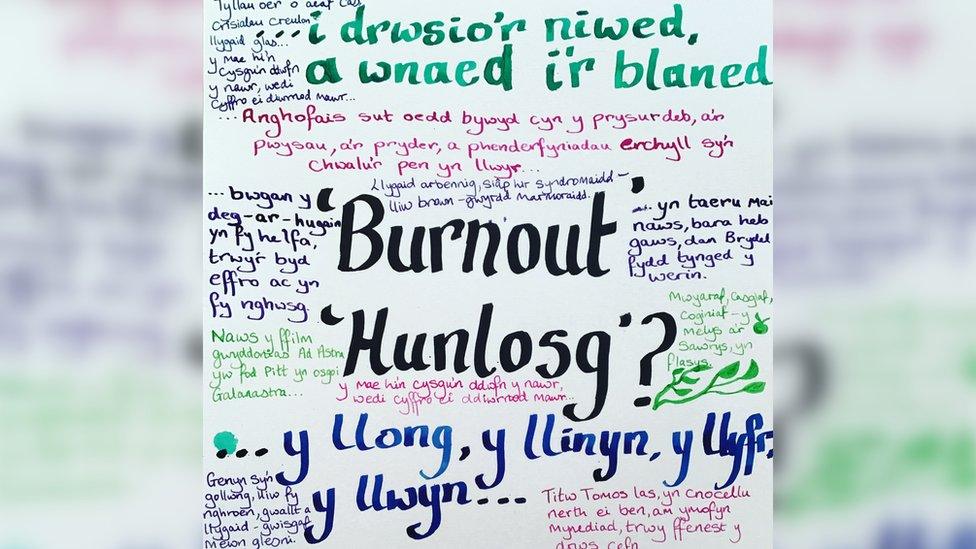 Tyllau oer o aeaf cas,
crisialau creulon
llygaid glas...
y mae hi'n
cysgu'n ddwfn
y nawr, wedi
cyffro ei diwrnod mawr...
...i drwsio'r niwed,
a wnaed i'r blaned
...Anghofais sut oedd bywyd cyn y prysurdeb, a'r
pwysau, a'r pryder, a phenderfyniadau erchyll sy'n
chwalu'r pen yn llwyr...
Llygaid arbennig, siâp hir syndromaidd –
lliw brown-gwyrdd marmoraidd.
...bwgan y
deg-ar-hugain
yn fy helfa,
trwy'r byd
effro ac yn
fy nghwsg.
'Burnout'
...yn taeru mai
naws, bara heb
gaws, dan Brydel
fydd tynged y
werin.
'Hunlosg'?
Mwyaraf, casglaf,
coginiaf – y
melys a'r
sawrys, yn
flasys.
Naws y ffilm
gwyddonias Ad Astra
yw fod Pitt yn osgoi
Galanastra...
y mae hi'n cysgu'n ddwfn y nawr,
wedi cyffro ei ddiwrnod mawr...
... y llong, y llinyn, y llyfr,
y llwyn...
Genyn sy'n
gollwng, lliw fy
nghroen, gwallt a
llygaid - gwisgaf
mewn gleoni.
Titw Tomos las, yn cnocellu
nerth ei ben, am ymofyn
mynediad, trwy ffenest y
drws cefn.